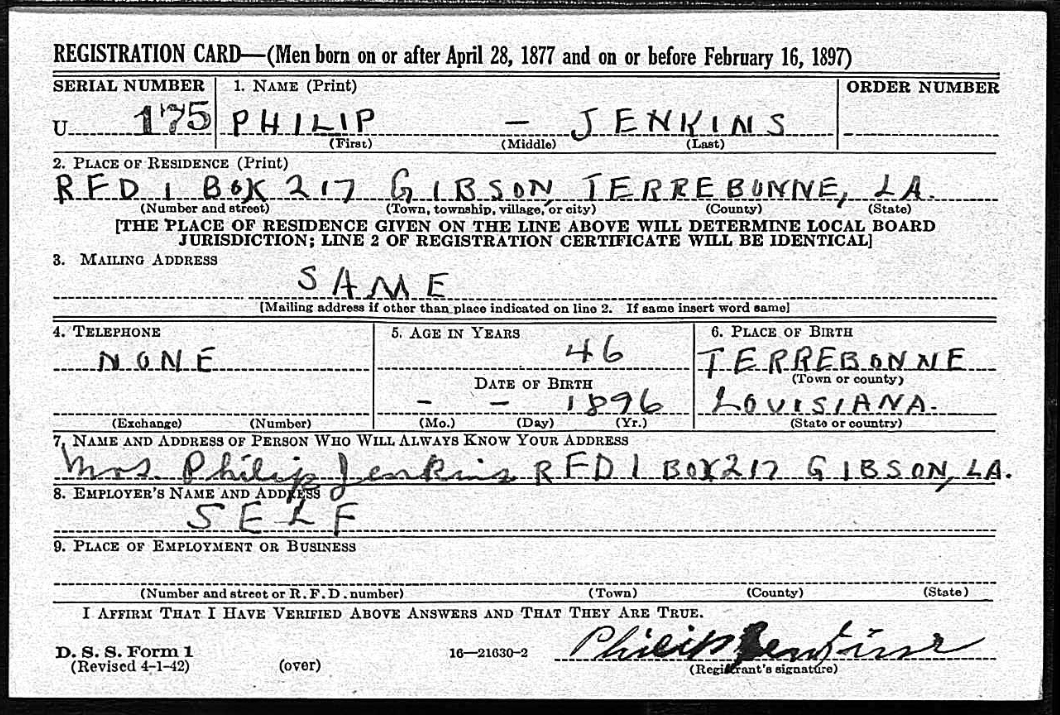 REGISTRATION CARD—(Men born on or after April 28, 1877 and on or before February 16, 1897)
SERIAL NUMBER 1. NAME (Print) ORDER NUMBER
U 175 PHILIP — JENKINS
(First) (Middle) (Last)
2. PLACE OF RESIDENCE (Print)
RFD 1 BOX 217 GIBSON, TERREBONNE, LA.
(Number and street) (Town, township, village, or city) (County) (State)
[THE PLACE OF RESIDENCE GIVEN ON THE LINE ABOVE WILL DETERMINE LOCAL BOARD
JURISDICTION; LINE 2 OF REGISTRATION CERTIFICATE WILL BE IDENTICAL]
3. MAILING ADDRESS
SAME
[Mailing address if other than place indicated on line 2. If same insert word same]
4. TELEPHONE 5. AGE IN YEARS 6. PLACE OF BIRTH
NONE 46 TERREBONNE
DATE OF BIRTH (Town or county)
— — 1896 LOUISIANA.
(Exchange) (Number) (Mo.) (Day) (Yr.) (State or country)
7. NAME AND ADDRESS OF PERSON WHO WILL ALWAYS KNOW YOUR ADDRESS
Mrs. Philip Jenkins RFD 1 BOX 217 GIBSON, LA.
8. EMPLOYER'S NAME AND ADDRESS
SELF
9. PLACE OF EMPLOYMENT OR BUSINESS
(Number and street or R. F. D. number) (Town) (County) (State)
I AFFIRM THAT I HAVE VERIFIED ABOVE ANSWERS AND THAT THEY ARE TRUE.
Philip Jenkins
D. S. S. Form 1 16—21630-2
(Revised 4-1-42) (over) (Registrant's signature)